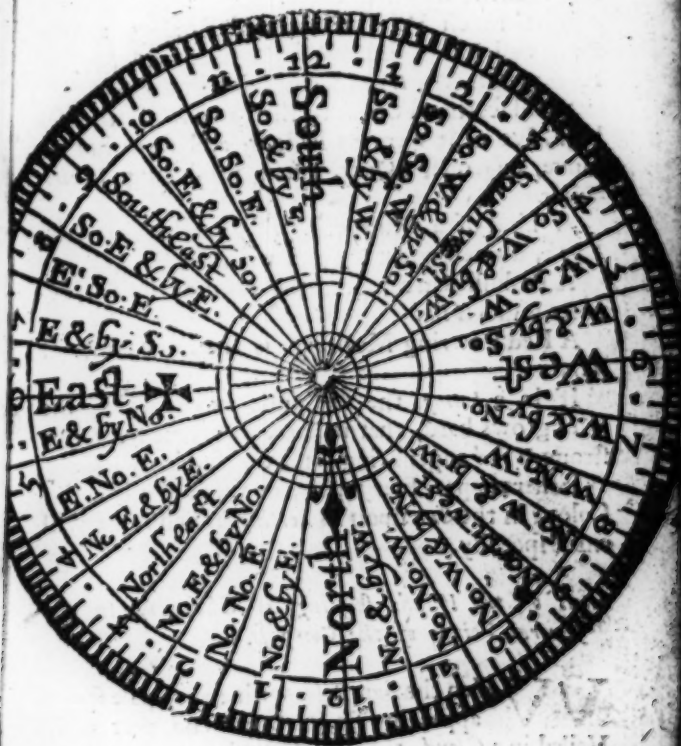 12
1
2
3
4
6
7
8
9
10
11
12
1
2
4
5
8
9
10
11
South
So & by W.
So. So. W
So. W. & by So
Southwest
So W. & by W.
W. so. W
W. & by So.
West
W. & by No.
W. No. W.
No. W. & by W
North west
No. W & by No.
No. No. W.
No. & by W.
North
No & by E.
No. No. E.
No. E. & by No.
North east
E & by E.
E. No. E.
E & by No.
East
E & by So.
E. So. E
So. E & by E.
South east
So. E & by So.
So. So. E.
So. & by E.